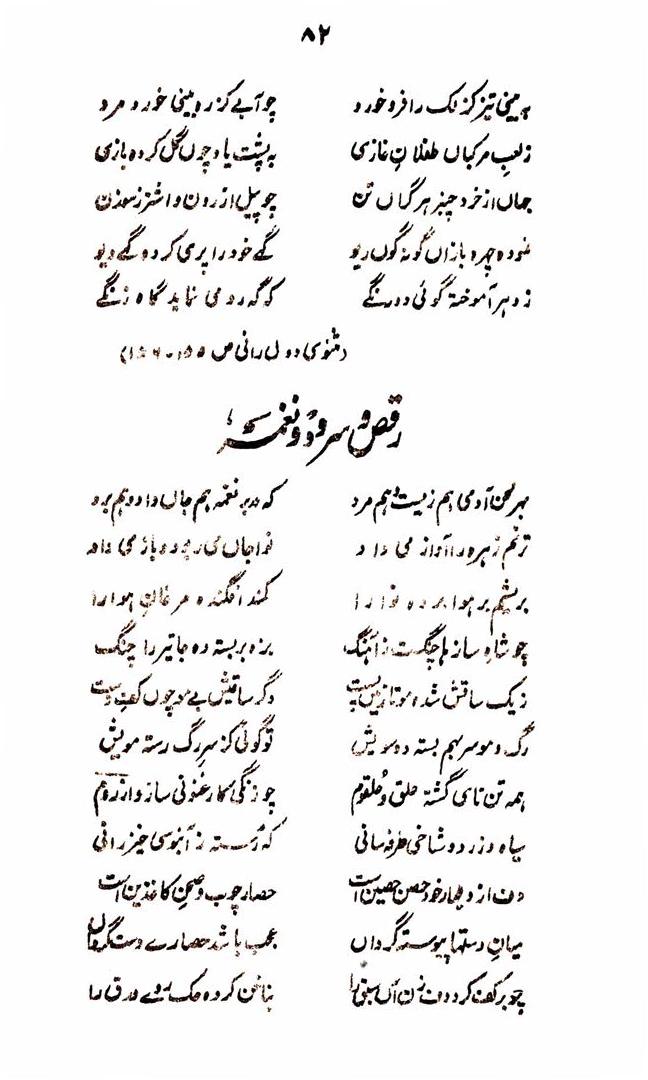 ۸۲
به بینی تیز کزلک را فرو خورد چو آبے کز ره بینی خورد مرد
زلعب مرکباں طفلانِ غازی به پشت باد چوں گل کرده بازی
جهاں از خرد چنبر هر گراں تن چو پیل از رون و اشتر ز سوزن
نموده چهره بازاں گونه گوں ریو گہے خود را پری کرده گہے دیو
ز دهر آموخته گوئی دو رنگے که گه رومی نماید گاه زنگے
(مثنوی دول رانی ص ۱۵۵-۱۵۶)
رقص و سرود و نغمہ
بهر لحن آدمی هم زیست و هم مرد که بد نغمہ هم جاں داد و هم برد
ترنم زهره را آواز می داد نوا جاں می ربود و باز می داد
بریشم بر هوا برده نوا را کمند افگنده مرغانِ هوا را
چو شاهِ سازها چنگ است ز آهنگ بزه بربسته ده جا تیر را چنگ
ز یک ساقش شده مو تا زمیں پست دگر ساقیش بے مو چوں کفِ دست
رگ و مو سر بهم بسته دو سویش تو گوئی کز سرِ رگ رسته مویش
همه تن نای گشته حلق و حلقوم چو زنگی کارغنونی سازد از روم
سیاه و زرد و شاخی طرفه سانی که رُسته ز آبنوسی خیزرانی
دف از دیوار خود حصن حصین است حصار چوب و صحن کاغذین است
میانِ دستها پیوسته گرداں عجب باشد حصارے دست گرداں
چو بر کف کرد دف زن آں سبق را بناخن کرده حک روے ورق را